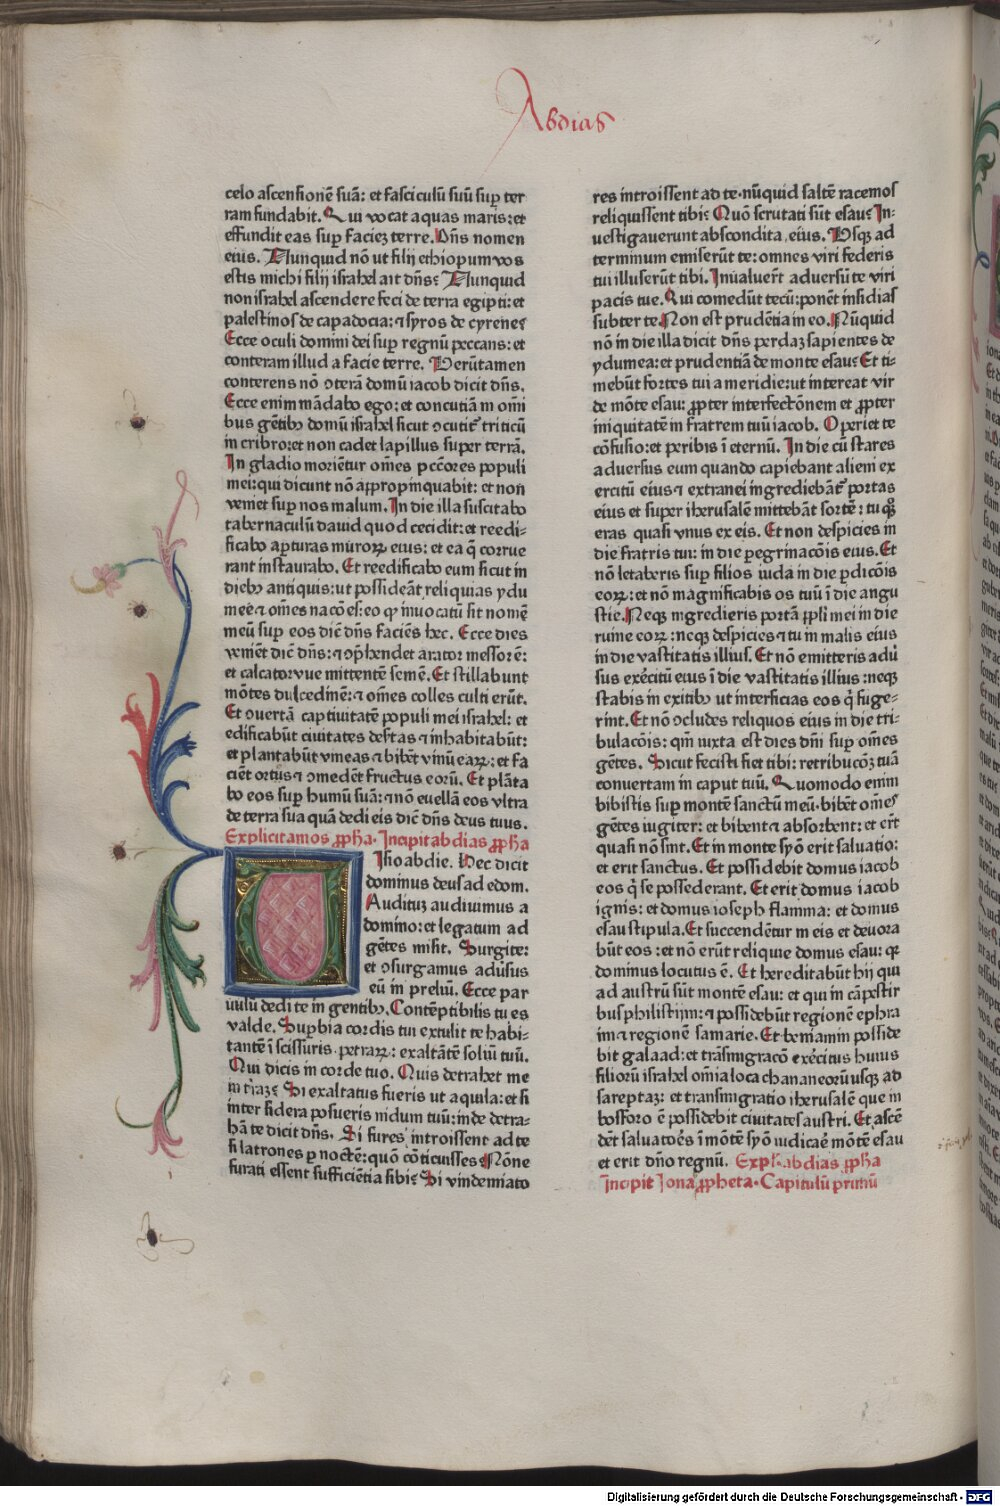 Abdias
celo ascensionē suā: et fasciculū suū suꝑ ter
ram fundabit. Qui vocat aquas maris: et
effundit eas suꝑ faciez terre. Dn̄s nomen
eius. Nunquid nō ut filij ethiopum vos
estis michi filij israhel ait dn̄s? Nunquid
non israhel ascendere feci de terra egipti: et
palestinos de capadocia: ⁊ syros de cyrene?
Ecce oculi domini dei suꝑ regnū peccans: et
conteram illud a facie terre. Verūtamen
conterens nō ↄterā domū iacob dicit dn̄s.
Ecce enim mādabo ego: et concutiā in om̄i
bus gētibꝫ domū israhel sicut ↄcutit᷑ triticū
in cribro: et non cadet lapillus super terrā.
In gladio moriētur om̄es pccōres populi
mei: qui dicunt nō aꝓpinquabit: et non
veniet suꝑ nos malum. In die illa suscitabo
tabernaculū dauid quod cecidit: et reedi-
ficabo aꝑturas muroꝝ eius: et ea q̄ corrue
rant instaurabo. Et reedificabo eum sicut in
diebꝫ antiquis: ut possideāt reliquias ydu
mee ⁊ om̄es nacōes: eo ꝙ inuocatū sit nomē
meū suꝑ eos dic̄ dn̄s faciēs hec. Ecce dies
veniēt dic̄ dn̄s: ⁊ ↄp̄hendet arator messorē:
et calcator vue mittentē semē. Et stillabunt
mōtes dulcedinē: ⁊ om̄es colles culti erūt.
Et ↄuertā captiuitatē populi mei israhel: et
edificabūt ciuitates deſtas ⁊ inhabitabūt:
et plantabūt vineas ⁊ bibēt vinū eaꝝ: et fa
ciēt ortus ⁊ ↄmedēt fructus eorū. Et plāta
bo eos suꝑ humū suā: ⁊ nō euellā eos vltra
de terra sua quā dedi eis dic̄ dn̄s deus tuus.
Explicit amos ꝓpha. Incipit abdias ꝓpha
Isio abdie. Hec dicit
dominus deus ad edom.
Audituꝫ audiuimus a
domino: et legatum ad
gētes misit. Surgite:
et ↄsurgamus adūsus
eū in preliū. Ecce par
uulū dedi te in gentibꝫ. Contēptibilis tu es
valde. Suꝑbia cordis tui extulit te habi-
tantē ī scissuris petraꝝ: exaltātē soliū tuū.
Qui dicis in corde tuo. Quis detrahet me
in t̄raꝫ? Si exaltatus fueris ut aquila: et si
inter sidera posueris nidum tuū: inde detra-
hā te dicit dn̄s. Si fures introissent ad te
si latrones ꝑ noctē: quō cōticuisses? Nōne
furati essent sufficiētia sibi? Si vindemiato
res introissent ad te. nūquid saltē racemos
reliquissent tibi? Quō scrutati sūt esau? In-
uestigauerunt abscondita eius. Vsqꝫ ad
terminum emiserūt te: omnes viri federis
tui illuserūt tibi. Inualuer̄t aduersū te viri
pacis tue. Qui comedūt tecū: ponēt insidias
subter te. Non est prudētia in eo. Nūquid
nō in die illa dicit dn̄s perdaꝫ sapientes de
ydumea: et prudentiā de monte esau? Et ti-
mebūt fortes tui a meridie: ut intereat vir
de mōte esau: ꝓpter interfectōnem et ꝓpter
iniquitatē in fratrem tuū iacob. Operiet te
cōfusio: et peribis ī eternū. In die cū stares
aduersus eum quando capiebant alieni ex
ercitū eius ⁊ extranei ingrediebāt᷑ portas
eius et super iherusalē mittebāt sortē: tu qͦqꝫ
eras quasi vnus ex eis. Et non despicies in
die fratris tui: in die peregrinacōis eius. Et
nō letaberis suꝑ filios iuda in die ꝑdicōis
eoꝝ: et nō magnificabis os tuū ī die angu
stie. Neqꝫ ingredieris portā ꝓpli mei in die
ruine eoꝝ: neqꝫ despicies ⁊ tu in malis eius
in die vastitatis illius. Et nō emitteris adū
sus exēcitū eius ī die vastitatis illius: neqꝫ
stabis in exitibꝫ ut interficias eos q̄ fuge-
rint. Et nō ↄcludes reliquos eius in die tri-
bulacōis: qm̄ iuxta est dies dn̄i suꝑ om̄es
gētes. Sicut fecisti fiet tibi: retribucōꝫ tuā
conuertam in caput tuū. Quomodo enim
bibistis suꝑ montē sanctū meū. bibēt om̄es
gētes iugiter: et bibent ⁊ absorbent: et er̄t
quasi nō sint. Et in monte syō erit saluatio:
et erit sanctus. Et possidebit domus iacob
eos q̄ se possederant. Et erit domus iacob
ignis: et domus ioseph flamma: et domus
esau stipula. Et succendētur in eis et deuora
būt eos: et nō erūt reliquie domus esau: ꝙ
dominus locutus ē. Et hereditabūt hij qui
ad austrū sūt montē esau: et qui in cāpestr̄i
bus philistijm: ⁊ possidebūt regionē ephra
im ⁊ regionē samarie. Et beniamin posside
bit galaad: et trāsmigracō exēcitus huius
filiorū israhel om̄ia loca chananeorū usqꝫ ad
sareptaꝫ: et transmigratio iherusalē que in
bosforo ē possidebit ciuitates austri. Et ascē
dēt saluatoēs ī mōtē syō iudicaē mōtē esau
et erit dn̄o regnū. Expl. abdias ꝓpha
Incipit Iona ꝓpheta. Capitulū primū
Digitalisierung gefördert durch die Deutsche Forschungsgemeinschaft - DFG